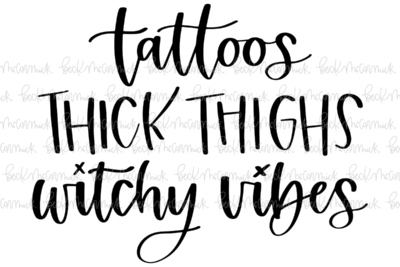 tattoos
THICK THIGHS
witchy vibes